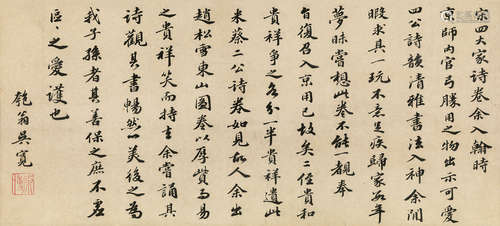 宋四大家詩卷余入翰時
京師内官弓勝用之物出示可愛
四公詩韻清雅書法入神余閒
暇求具一玩不意末疾歸家每年
夢昧嘗想此卷不能一覩奉
旨復召入京用已故矣二侄貴和
貴祥爭之各分一半貴祥遺此
米蔡二公詩卷如見故人余出
趙松雪東山圖卷以厚貲易
之貴祥笑而持去余嘗誦其
詩觀其書暢然以美後之為
我子孫者其善保之庶不虛
區〻之愛護也
匏翁吳寬